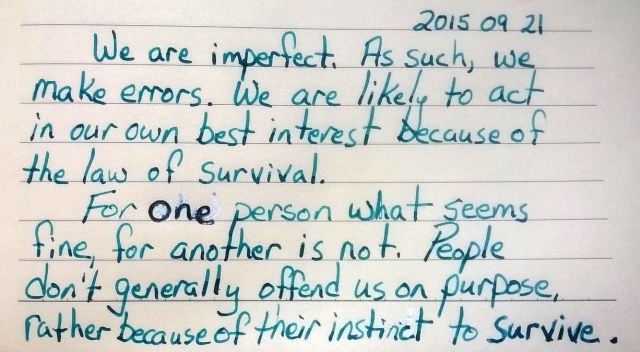 2015 09 21
We are imperfect. As such, we
make errors. We are likely to act
in our own best interest because of
the law of survival.
For one person what seems
fine, for another is not. People
don't generally offend us on purpose,
rather because of their instinct to survive.